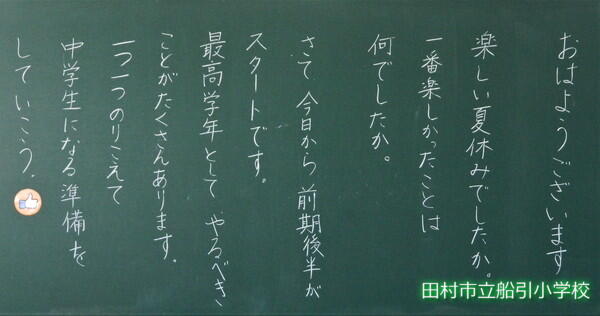 おはようございます
楽しい夏休みでしたか。
一番楽しかったことは
何でしたか。
さて 今日から 前期後半が
スタートです。
最高学年として やるべき
ことがたくさんあります。
一つ一つのりこえて
中学生になる準備を
していこう。
田村市立船引小学校